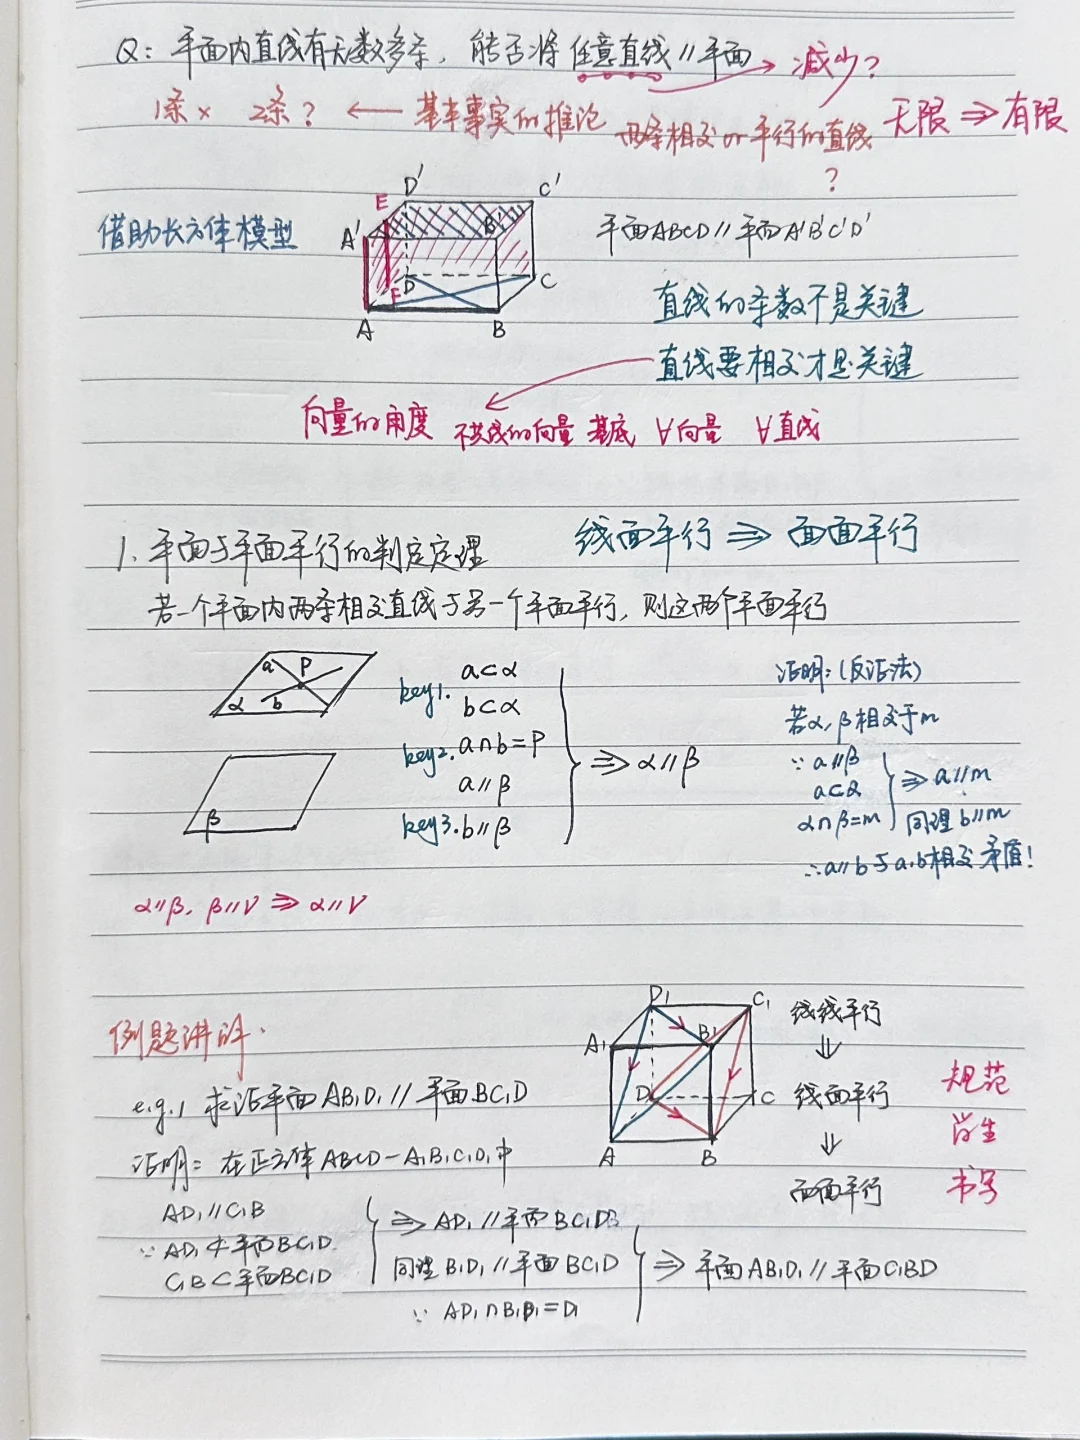 Q: 平面内直线有无数多条, 能否将任意直线 // 平面 → 减少?
1条 × 2条? ← 基本事实的推论 两条相交 or 平行的直线 无限 ⇒ 有限
?
借助长方体模型
D' C' E A' B' D F C A B
平面ABCD // 平面A'B'C'D'
直线的条数不是关键
直线要相交才是关键
向量的角度 不共线的向量 基底 ∀向量 ∀直线
1. 平面与平面平行的判定定理 线面平行 ⇒ 面面平行
若一个平面内两条相交直线与另一个平面平行, 则这两个平面平行
a P α b
β
key1. a⊂α
b⊂α
key2. a∩b=P
a // β
key3. b // β
⇒ α // β
证明: (反证法)
若α, β相交于m
∵ a // β
a⊂α
α∩β=m
⇒ a // m
同理 b // m
∴ a // b 与 a,b相交 矛盾!
α // β, β // γ ⇒ α // γ
例题讲解.
D₁ C₁ A₁ B₁ D C A B
线线平行
⇓
线面平行
⇓
面面平行
规范
学生
书写
e.g.1 求证平面AB₁D₁ // 平面BC₁D
证明: 在正方体ABCD-A₁B₁C₁D₁中
AD₁ // C₁B
∵ AD₁ ⊄ 平面BC₁D
C₁B ⊂ 平面BC₁D
⇒ AD₁ // 平面BC₁D
同理 B₁D₁ // 平面BC₁D
∵ AD₁∩B₁D₁=D₁
⇒ 平面AB₁D₁ // 平面C₁BD